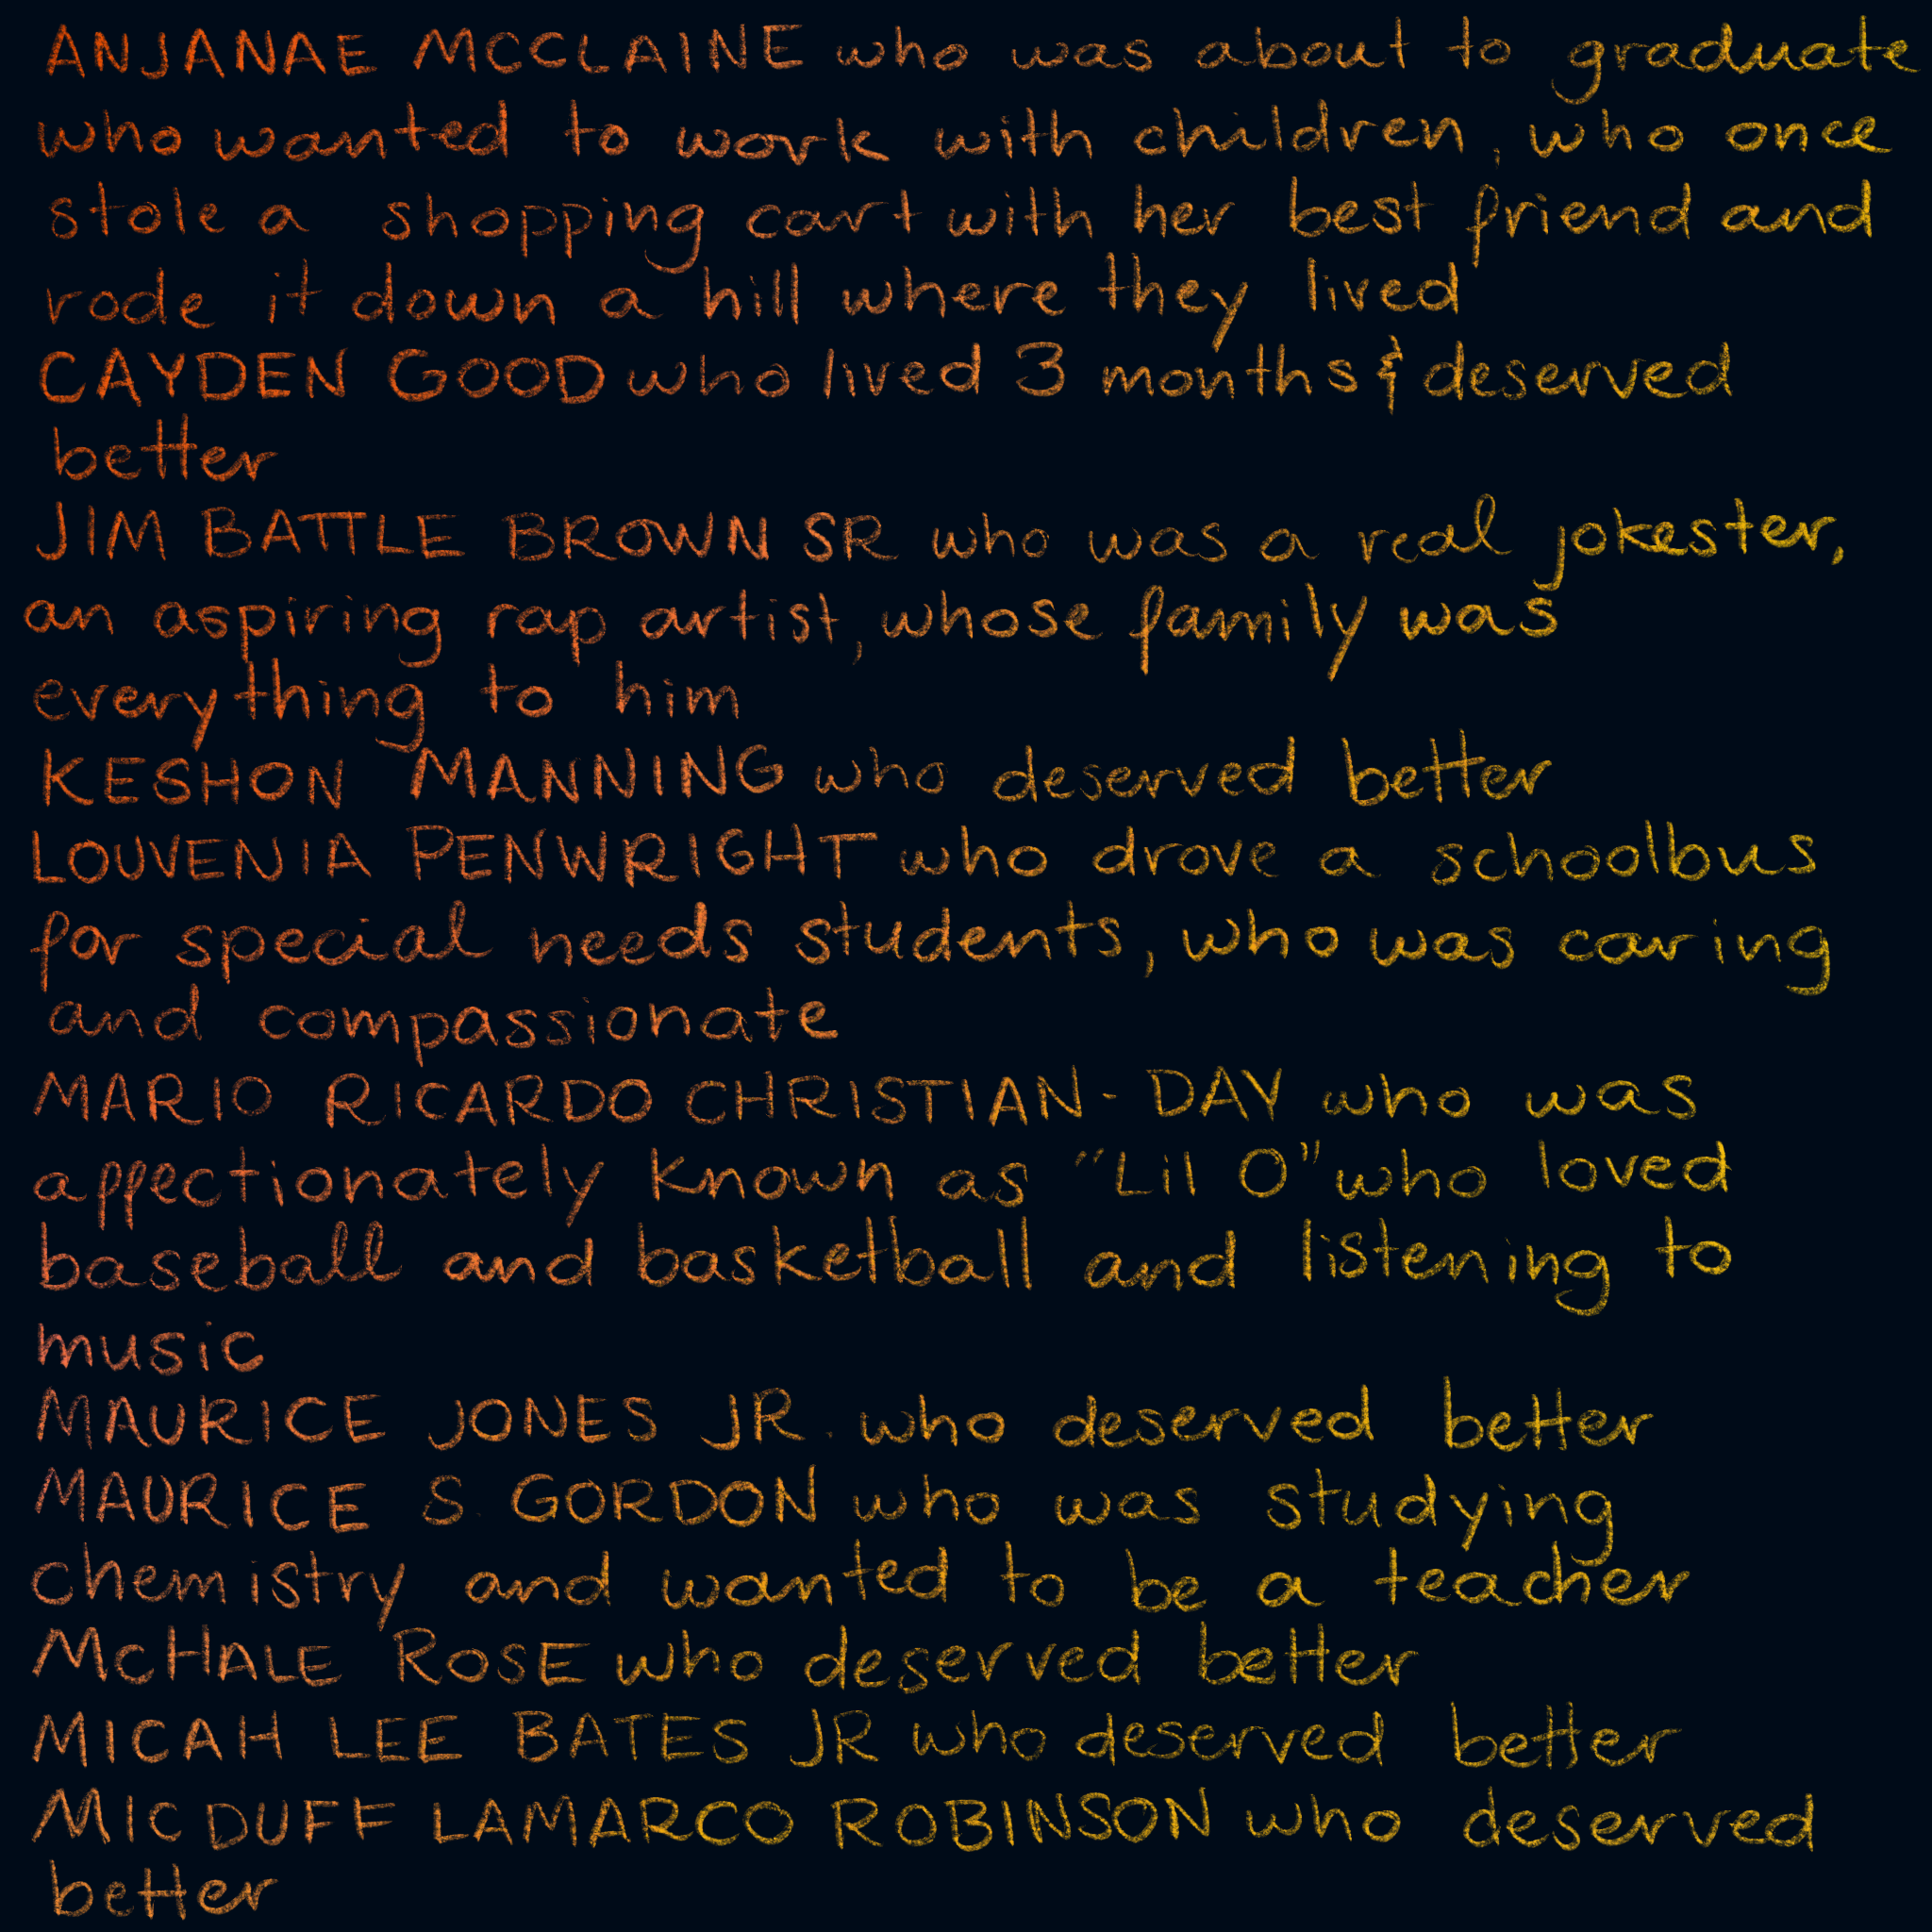 ANJANAE MCCLAINE who was about to graduate
who wanted to work with children, who once
stole a shopping cart with her best friend and
rode it down a hill where they lived
CAYDEN GOOD who lived 3 months & deserved
better
JIM BATTLE BROWN SR who was a real jokester,
an aspiring rap artist, whose family was
everything to him
KESHON MANNING who deserved better
LOUVENIA PENWRIGHT who drove a schoolbus
for special needs students, who was caring
and compassionate
MARIO RICARDO CHRISTIAN-DAY who was
affectionately known as "Lil O" who loved
baseball and basketball and listening to
music
MAURICE JONES JR. who deserved better
MAURICE S. GORDON who was studying
chemistry and wanted to be a teacher
McHALE ROSE who deserved better
MICAH LEE BATES JR who deserved better
MICDUFF LAMARCO ROBINSON who deserved
better